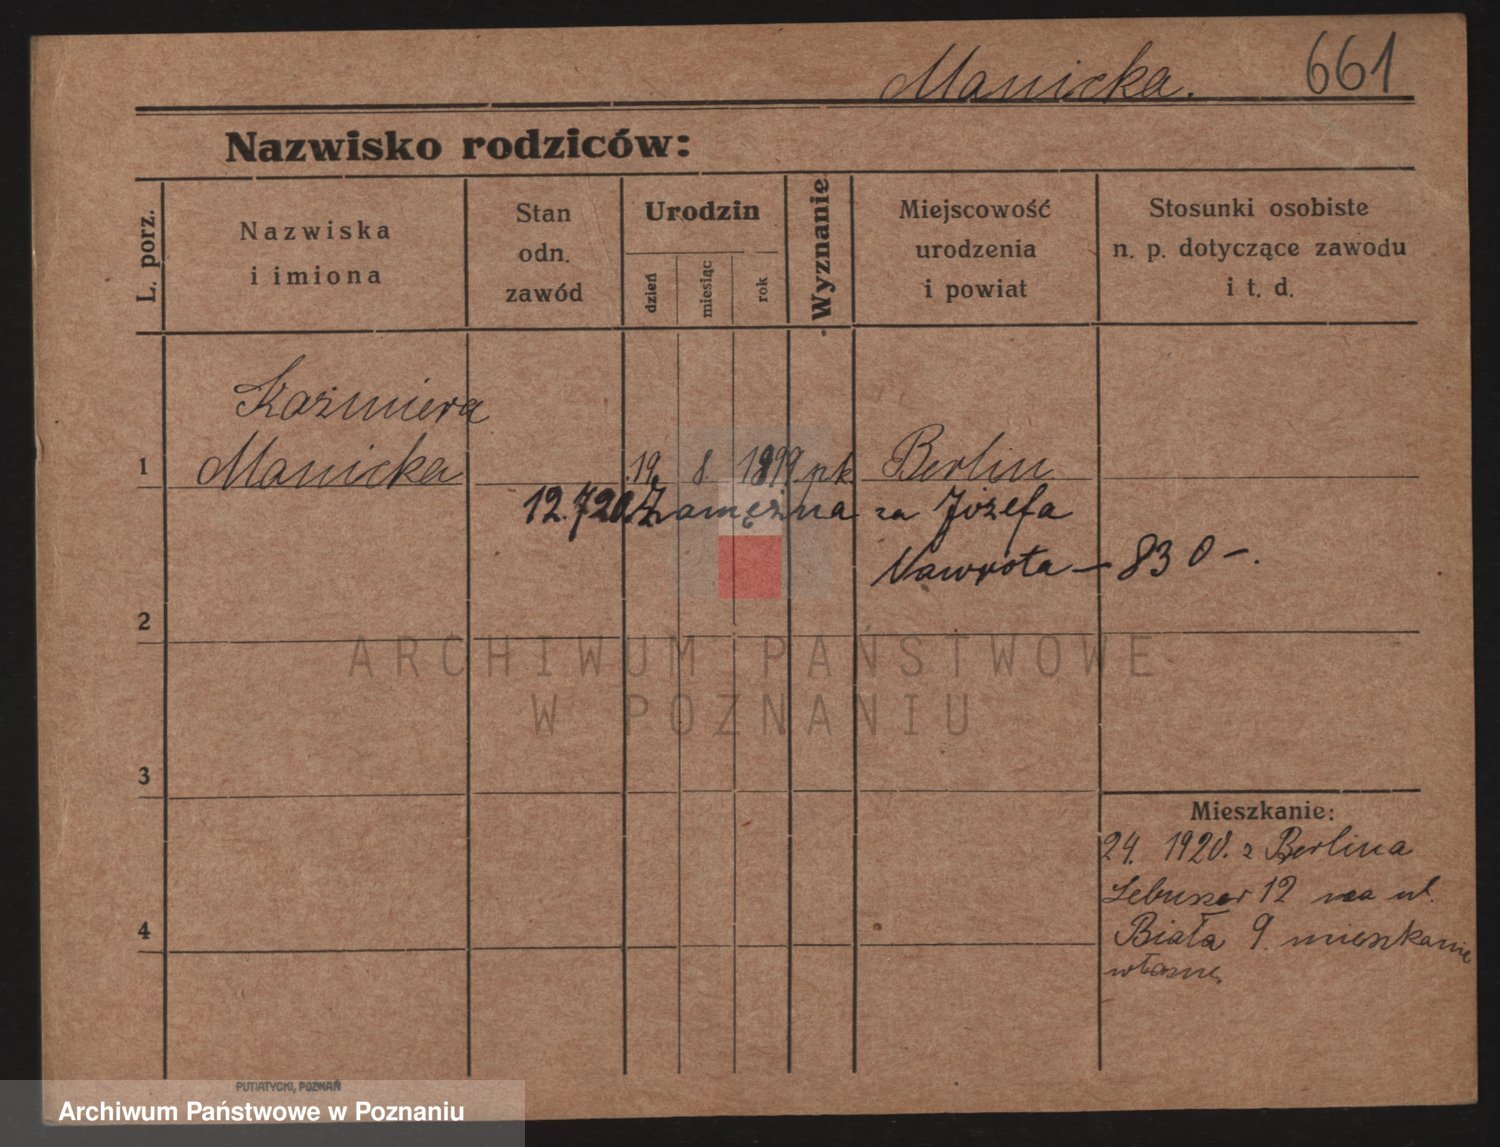 Manicka.
661
Nazwisko rodziców:
L. porz.
Nazwiska
i imiona
Stan
odn.
zawód
Urodzin
dzień
miesiąc
rok
Wyznanie
Miejscowość
urodzenia
i powiat
Stosunki osobiste
n. p. dotyczące zawodu
i t. d.
Kazimiera
1 Manicka 19. 8. 1899. pk Berlin
12.7.20. Zamężna za Józefa
Nawrota – 830 –.
2
ARCHIWUM PAŃSTWOWE
W POZNANIU
3
Mieszkanie:
24. 1920. z Berlina
Lebuser 12 na ul.
4 Biała 9. mieszkanie
własne.
PUTIATYCKI, POZNAŃ
Archiwum Państwowe w Poznaniu